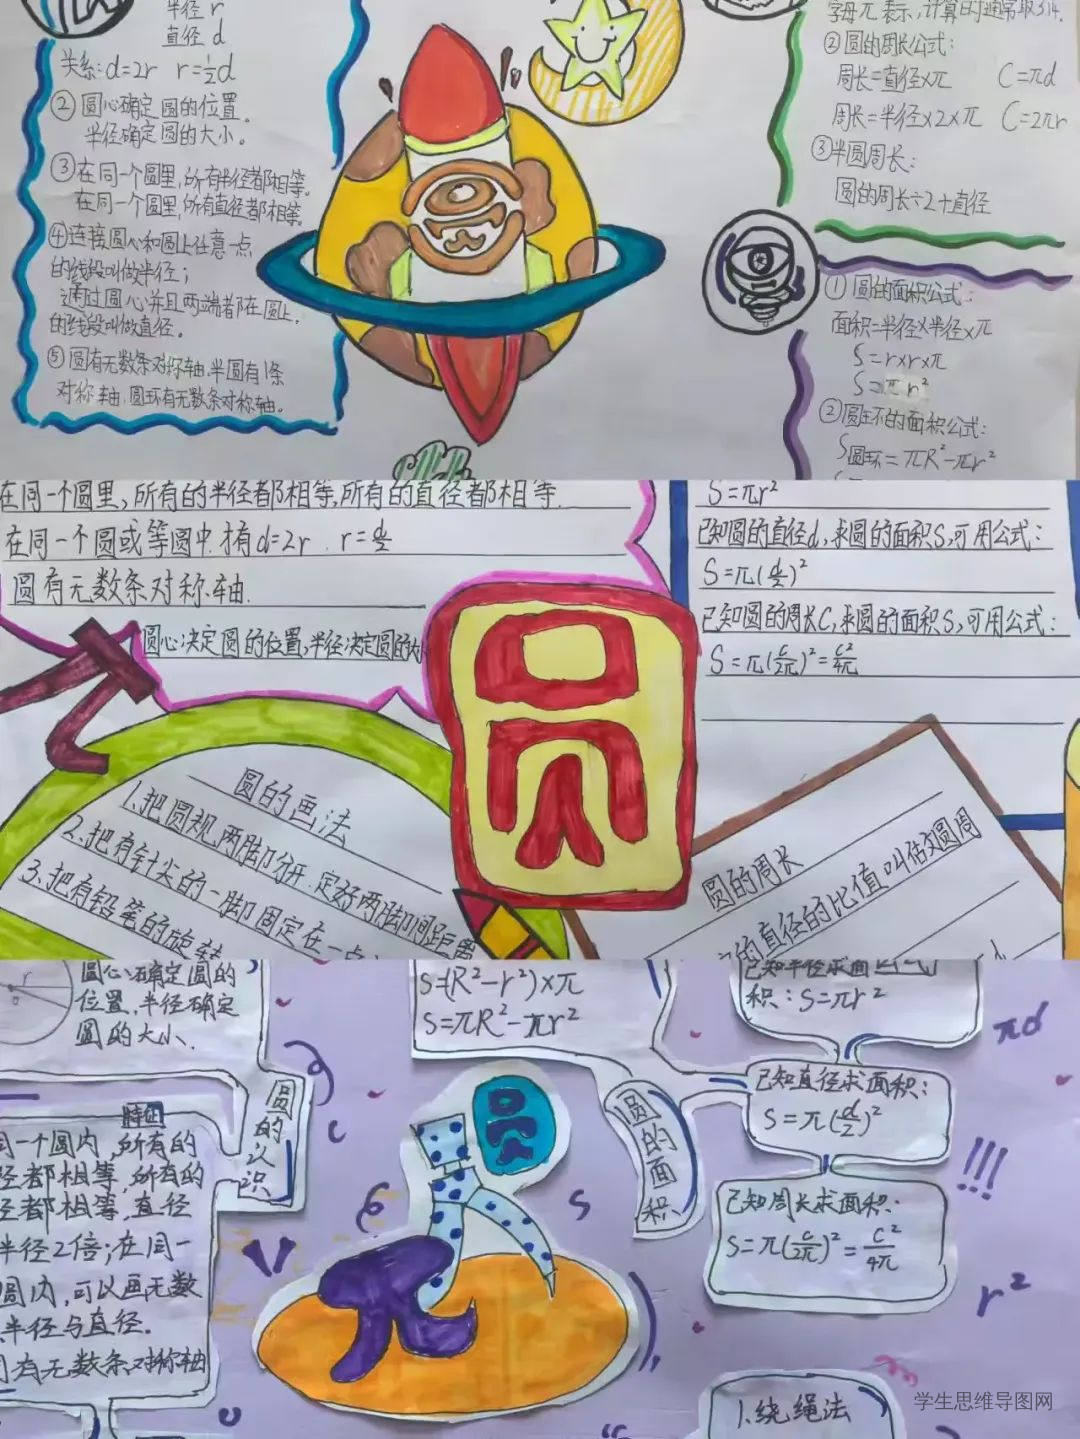 半径r
直径d
关系:d=2r r=½d
②圆心确定圆的位置。
半径确定圆的大小。
③在同一个圆里,所有半径都相等。
在同一个圆里,所有直径都相等。
④连接圆心和圆上任意一点
的线段叫做半径;
通过圆心并且两端都在圆上
的线段叫做直径。
⑤圆有无数条对称轴.半圆有1条
对称轴.圆环有无数条对称轴。
圆
字母π表示,计算时通常取3.14.
②圆的周长公式:
周长=直径×π C=πd
周长=半径×2×π C=2πr
③半圆周长:
圆的周长÷2+直径
①圆的面积公式:
面积=半径×半径×π
S=r×r×π
S=πr²
②圆环的面积公式:
S圆环=πR²-πr²
在同一个圆里,所有的半径都相等,所有的直径都相等.
在同一个圆或等圆中.才有d=2r.r=d/2
圆有无数条对称轴.
圆心决定圆的位置,半径决定圆的大小
π
圆
圆的画法
1.把圆规两脚分开.定好两脚间距离
2.把有针尖的一脚固定在一点
3.把有铅笔的旋转
S=πr²
已知圆的直径d,求圆的面积S,可用公式:
S=π(d/2)²
已知圆的周长C,求圆的面积S,可用公式:
S=π(C/2π)²=C²/4π
圆的周长
的直径的比值叫做圆周
r
o
圆心确定圆的
位置,半径确定
圆的大小、
圆的认识
特征
同一个圆内,所有的
径都相等,所有的
径都相等,直径
半径2倍;在同一
圆内,可以画无数
半径与直径.
有无数条对称轴
S=(R²-r²)×π
S=πR²-πr²
圆的面积
已知半径求面
积:S=πr²
已知直径求面积:
S=π(d/2)²
已知周长求面积:
S=π(C/2π)²=C²/4π
圆
π
C
S
πd
!!!
r²
1.绕绳法
学生思维导图网